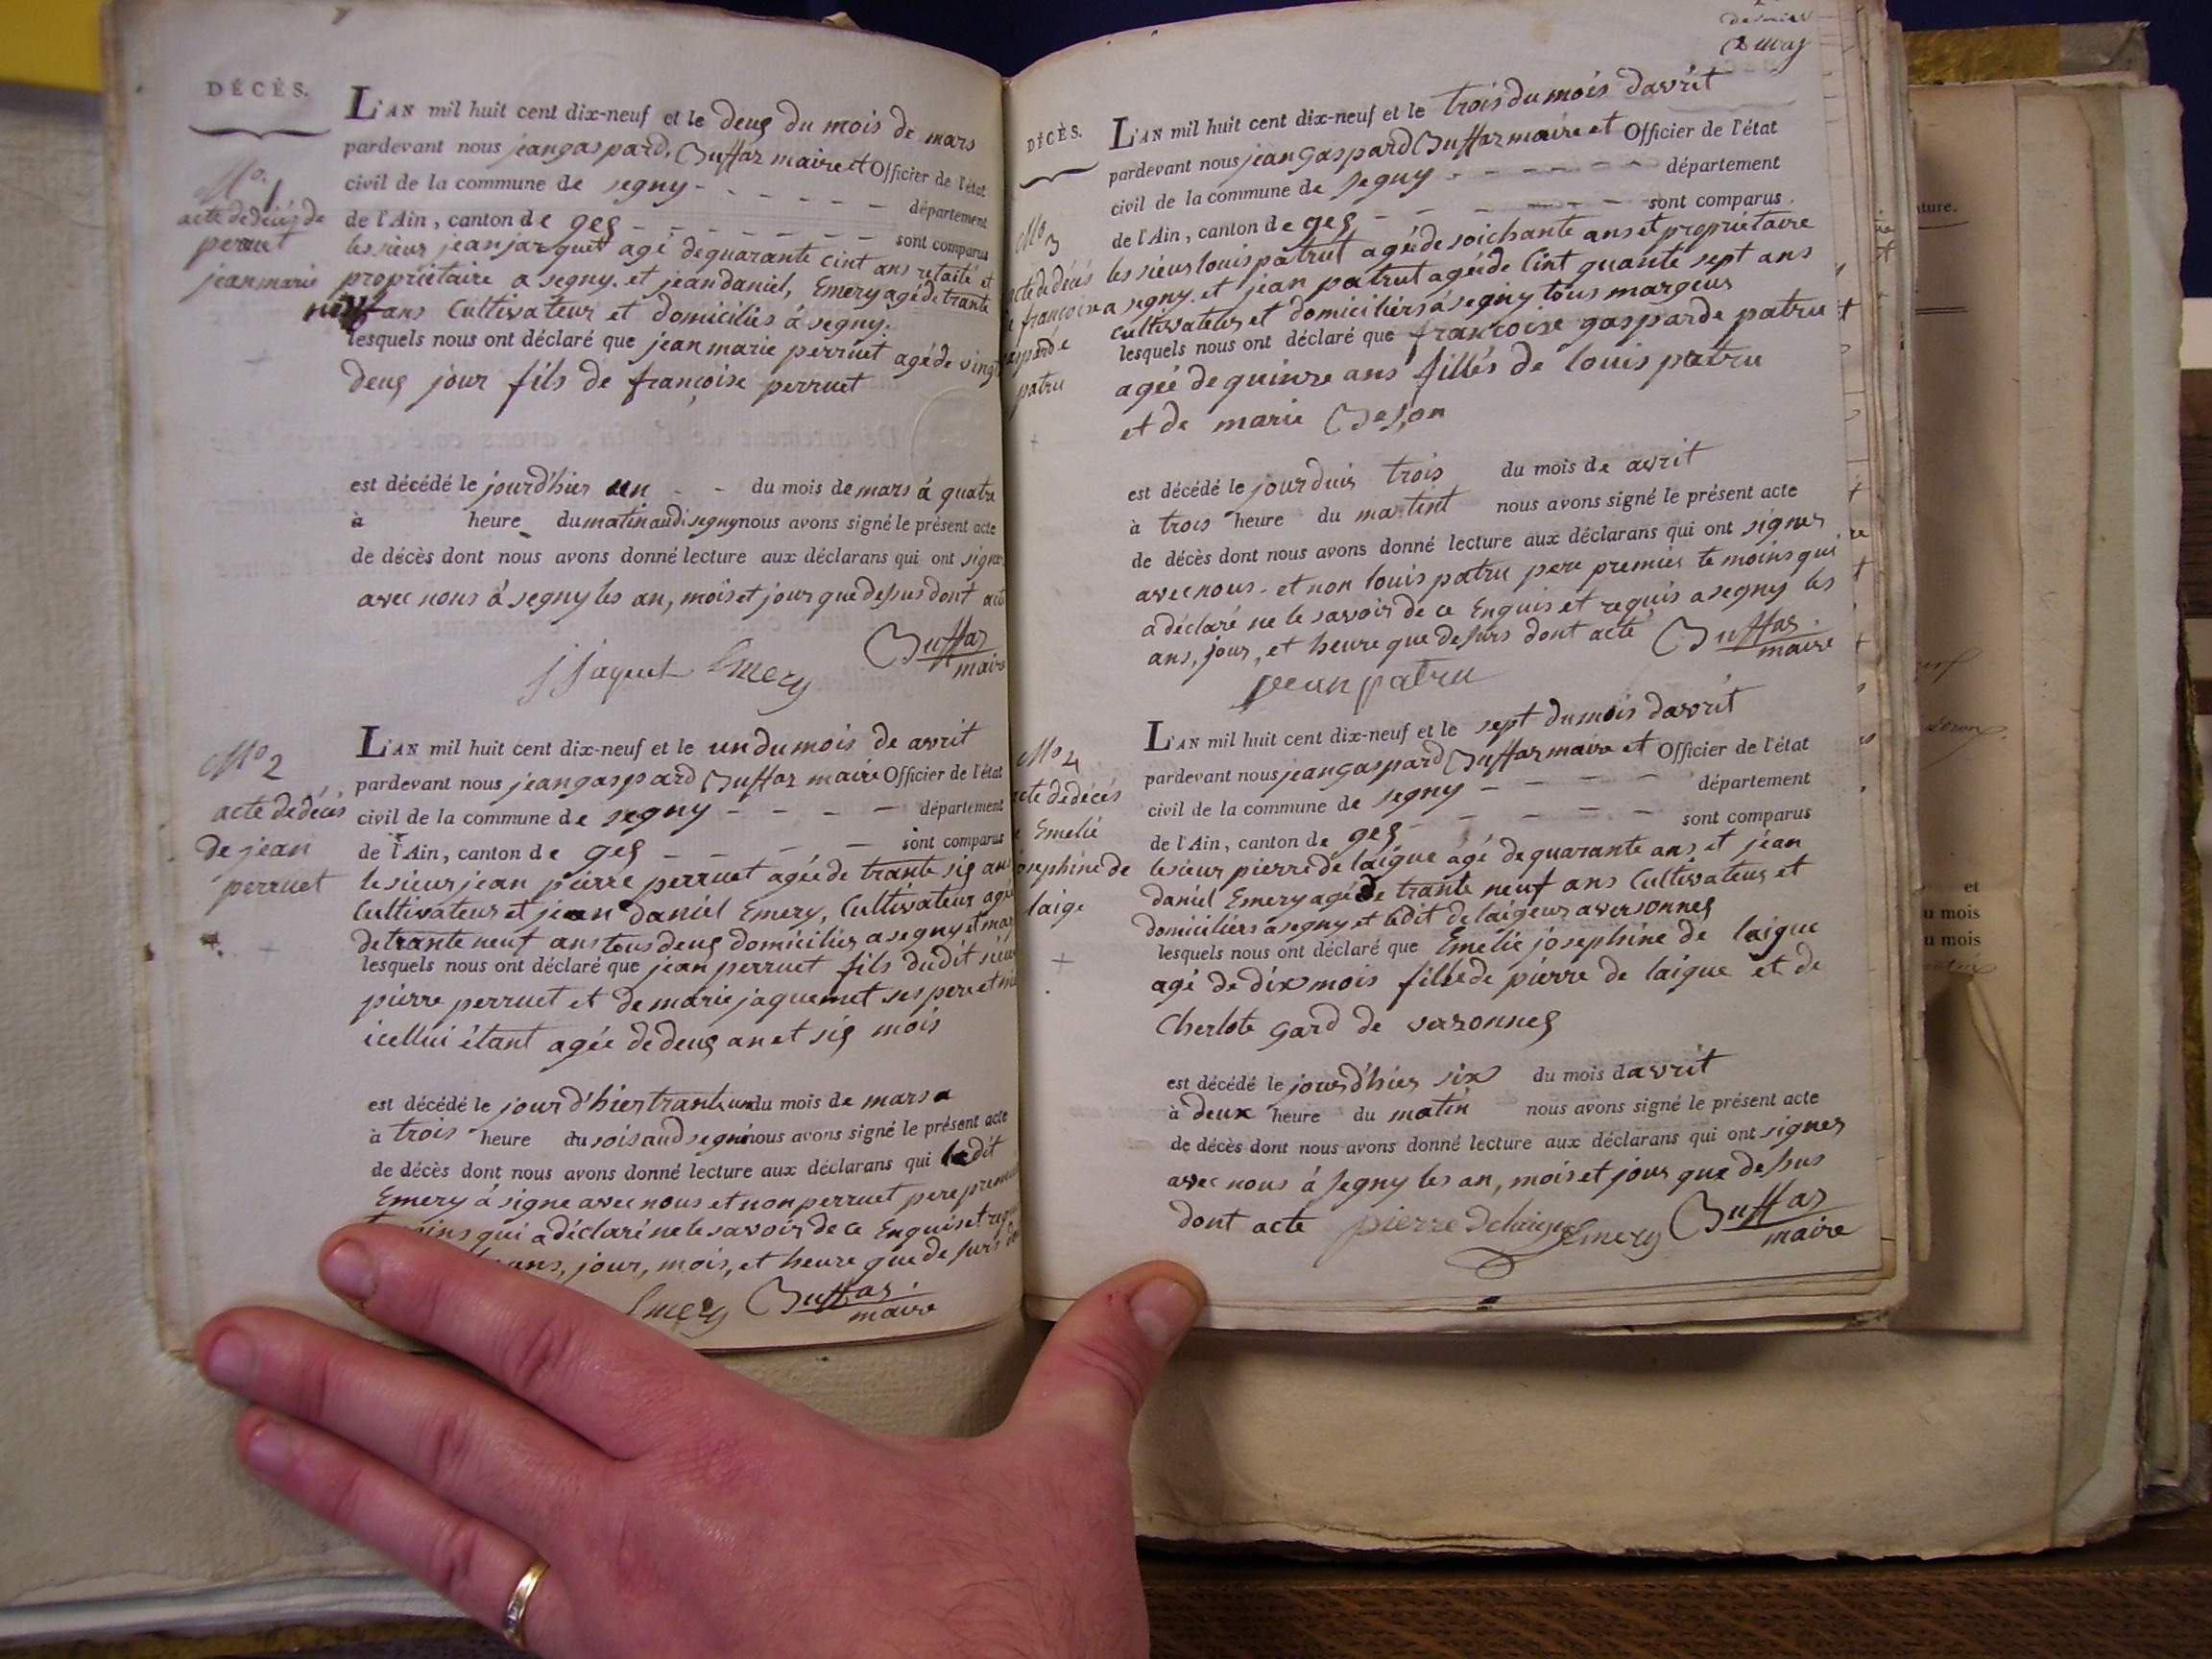 DÉCÈS.
L'AN mil huit cent dix-neuf et le deug du mois de mars
pardevant nous jean gaspard, Buffaz maire et Officier de l'état
civil de la commune de segny - - - - - - département
de l'Ain, canton de geg - - - - - - - sont comparus
les sieur jean jarquet agé de quarante cint ans retaité et
propriétaire a segny. et jean daniel, Emery agé de trante
neuf ans Cultivateur et domiciliés á segny.
lesquels nous ont déclaré que jean marie perruet agé de vingt
deug jour fils de françoise perruet
est décédé le jourd'hier un - - du mois de mars á quatre
à heure du matin audi segny nous avons signé le présent acte
de décès dont nous avons donné lecture aux déclarans qui ont signe
avec nous á segny les an, mois et jour que dessus dont acte
J Jaquet Emery Buffaz
maire
No. 1
acte de décés de
perruet
jean marie
L'AN mil huit cent dix-neuf et le un du mois de avrit
pardevant nous jean gaspard Buffaz maire Officier de l'état
civil de la commune de segny - - - - département
de l'Ain, canton de geg - - - - - sont comparus
le sieur jean pierre perruet agée de trante sig ans
Cultivateur et jean daniel Emery, Cultivateur agé
de trante neuf ans tous deug domiciliés a segny et
lesquels nous ont déclaré que jean perruet fils dudit sieur
pierre perruet et de marie jaquemet ses pere et
icellui étant agée de deug an et sig mois
est décédé le jour d'hier trante un du mois de mars a
à trois heure du soir aud segni nous avons signé le présent acte
de décès dont nous avons donné lecture aux déclarans qui ledit
Emery á signe avec nous et non perruet pere
qui a déclaré ne le savoir de ce Enquis et
ans, jour, mois, et heure que de surs
Emery Buffaz
maire
No 2
acte de décés
de jean
perruet
DÉCÈS.
L'AN mil huit cent dix-neuf et le trois du mois d'avrit
pardevant nous jean Gaspard Buffaz maire et Officier de l'état
civil de la commune de Segny - - - - - - département
de l'Ain, canton de geg - - - - - - sont comparus
les sieur louis patrut agée de soichante ans et propriétaire
a segny. et jean patrut agée de Cint quante sept ans
cultivateur et domiciliers á segny tous margeur
lesquels nous ont déclaré que francoise gasparde patru
agée de quinze ans fillés de louis patru
et de marie Besson
est décédé le jourduis trois du mois de avrit
à trois heure du matint nous avons signé le présent acte
de décès dont nous avons donné lecture aux déclarans qui ont signer
avec nous. et non louis patru pere premier temoins qui
a déclaré ne le savoir de ce Enquis et requis a segny les
ans, jour, et heure que de surs dont acté Buffaz
maire
jean patru
No 3
acte de décés
francoise
patru
L'AN mil huit cent dix-neuf et le sept du mois d'avrit
pardevant nous jean Gaspard Buffaz maire et Officier de l'état
civil de la commune de segny - - - - département
de l'Ain, canton de geg - - - - - sont comparus
le sieur pierre de laigue agé de quarante ans et jean
daniel Emery agé de trante neuf ans Cultivateur et
domiciliers a segny et ledit de laigeur a versonneg
lesquels nous ont déclaré que Emelie josephine de laigue
agé de dix mois fille de pierre de laigue et de
Cherlote Gard de verzonneg
est décédé le jourd'hier six du mois d avrit
à deux heure du matin nous avons signé le présent acte
de décès dont nous avons donné lecture aux déclarans qui ont signer
avec nous á Segny les an, mois et jour que dessus
dont acte pierre Delaigue Emery Buffaz
maire
No 4
acte de décés
Emelie
josephine de
laige
et
u mois
u mois